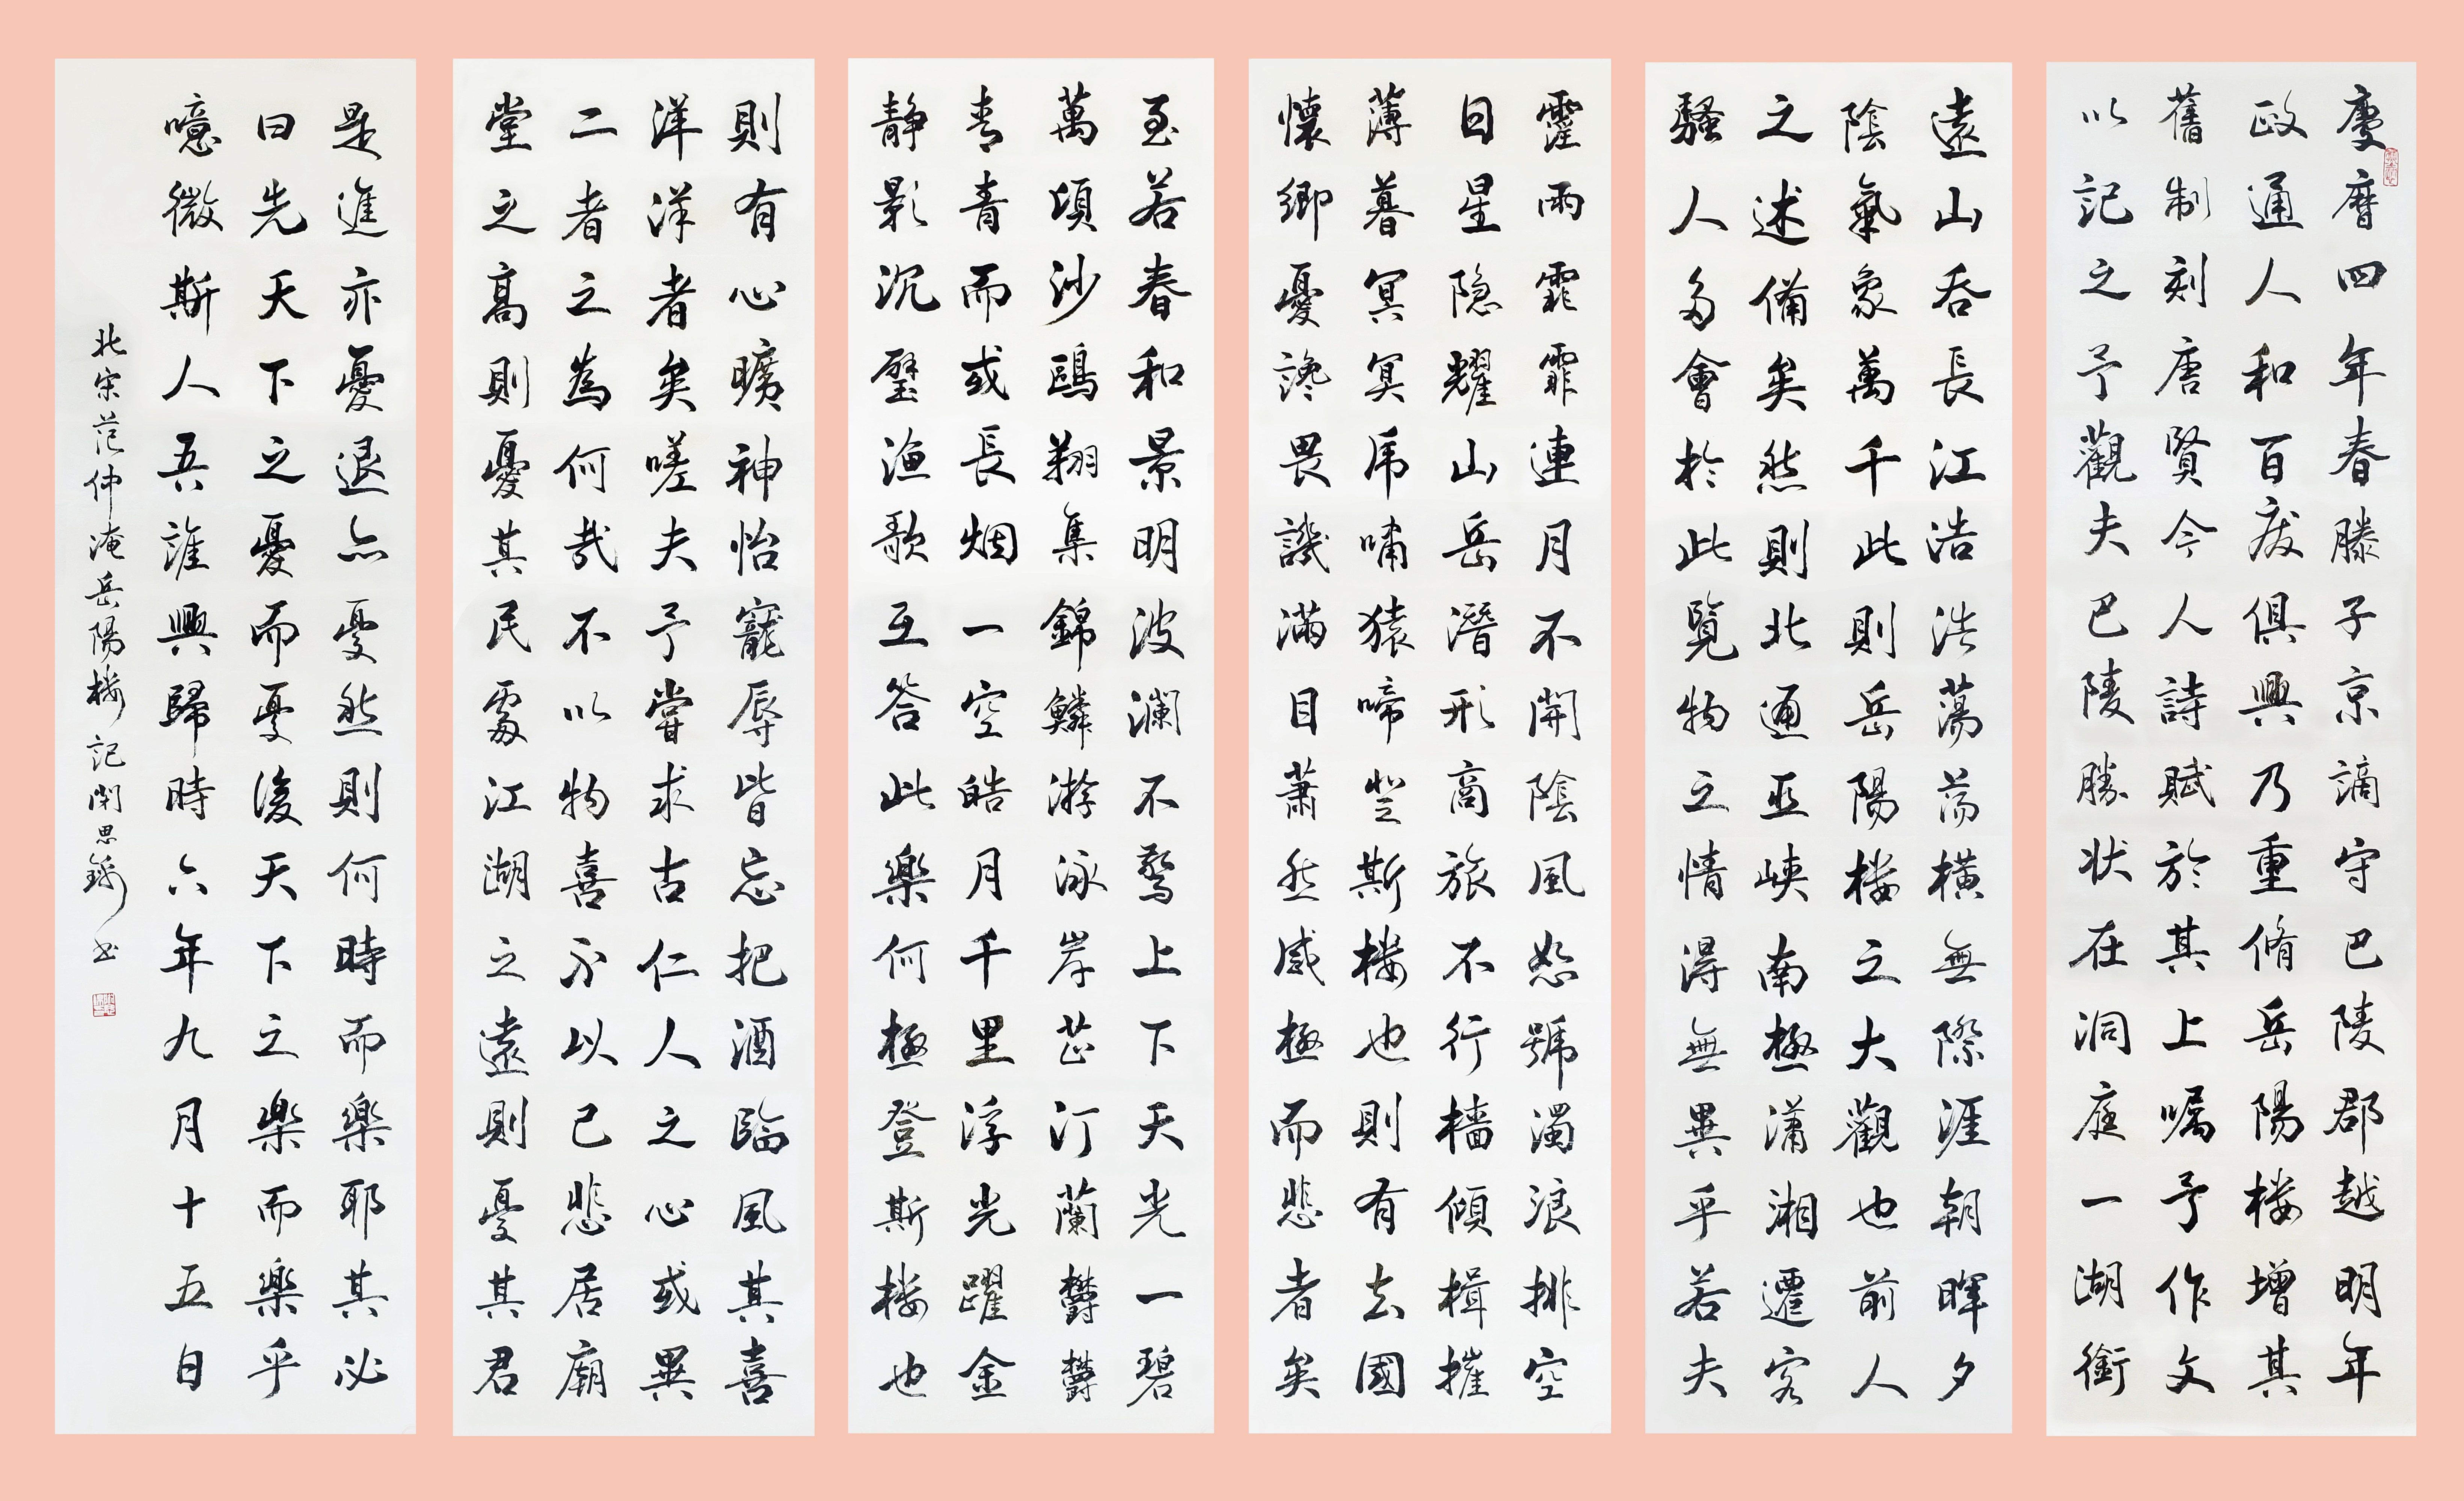 慶曆四年春滕子京謫守巴陵郡越明年
政通人和百废俱興乃重脩岳陽楼增其
舊制刻唐賢今人詩賦於其上嘱予作文
以記之予觀夫巴陵勝状在洞庭一湖銜
遠山吞長江浩浩蕩蕩橫無際涯朝暉夕
陰氣象萬千此則岳陽楼之大觀也前人
之述備矣然則北通巫峽南極瀟湘遷客
騷人多會於此覽物之情得無異乎若夫
霪雨霏霏連月不開陰風怒號濁浪排空
日星隐耀山岳潛形商旅不行檣傾楫摧
薄暮冥冥虎嘯猿啼登斯楼也則有去國
懷鄉憂讒畏譏滿目蕭然感極而悲者矣
至若春和景明波瀾不驚上下天光一碧
萬頃沙鷗翔集錦鱗游泳岸芷汀蘭鬱鬱
青青而或長烟一空皓月千里浮光躍金
静影沉璧渔歌互答此樂何極登斯楼也
則有心曠神怡寵辱皆忘把酒臨風其喜
洋洋者矣嗟夫予嘗求古仁人之心或異
二者之為何哉不以物喜不以己悲居廟
堂之高則憂其民處江湖之遠則憂其君
是進亦憂退亦憂然則何時而樂耶其必
曰先天下之憂而憂後天下之樂而樂乎
噫微斯人吾誰興歸時六年九月十五日
北宋范仲淹岳陽楼記思书